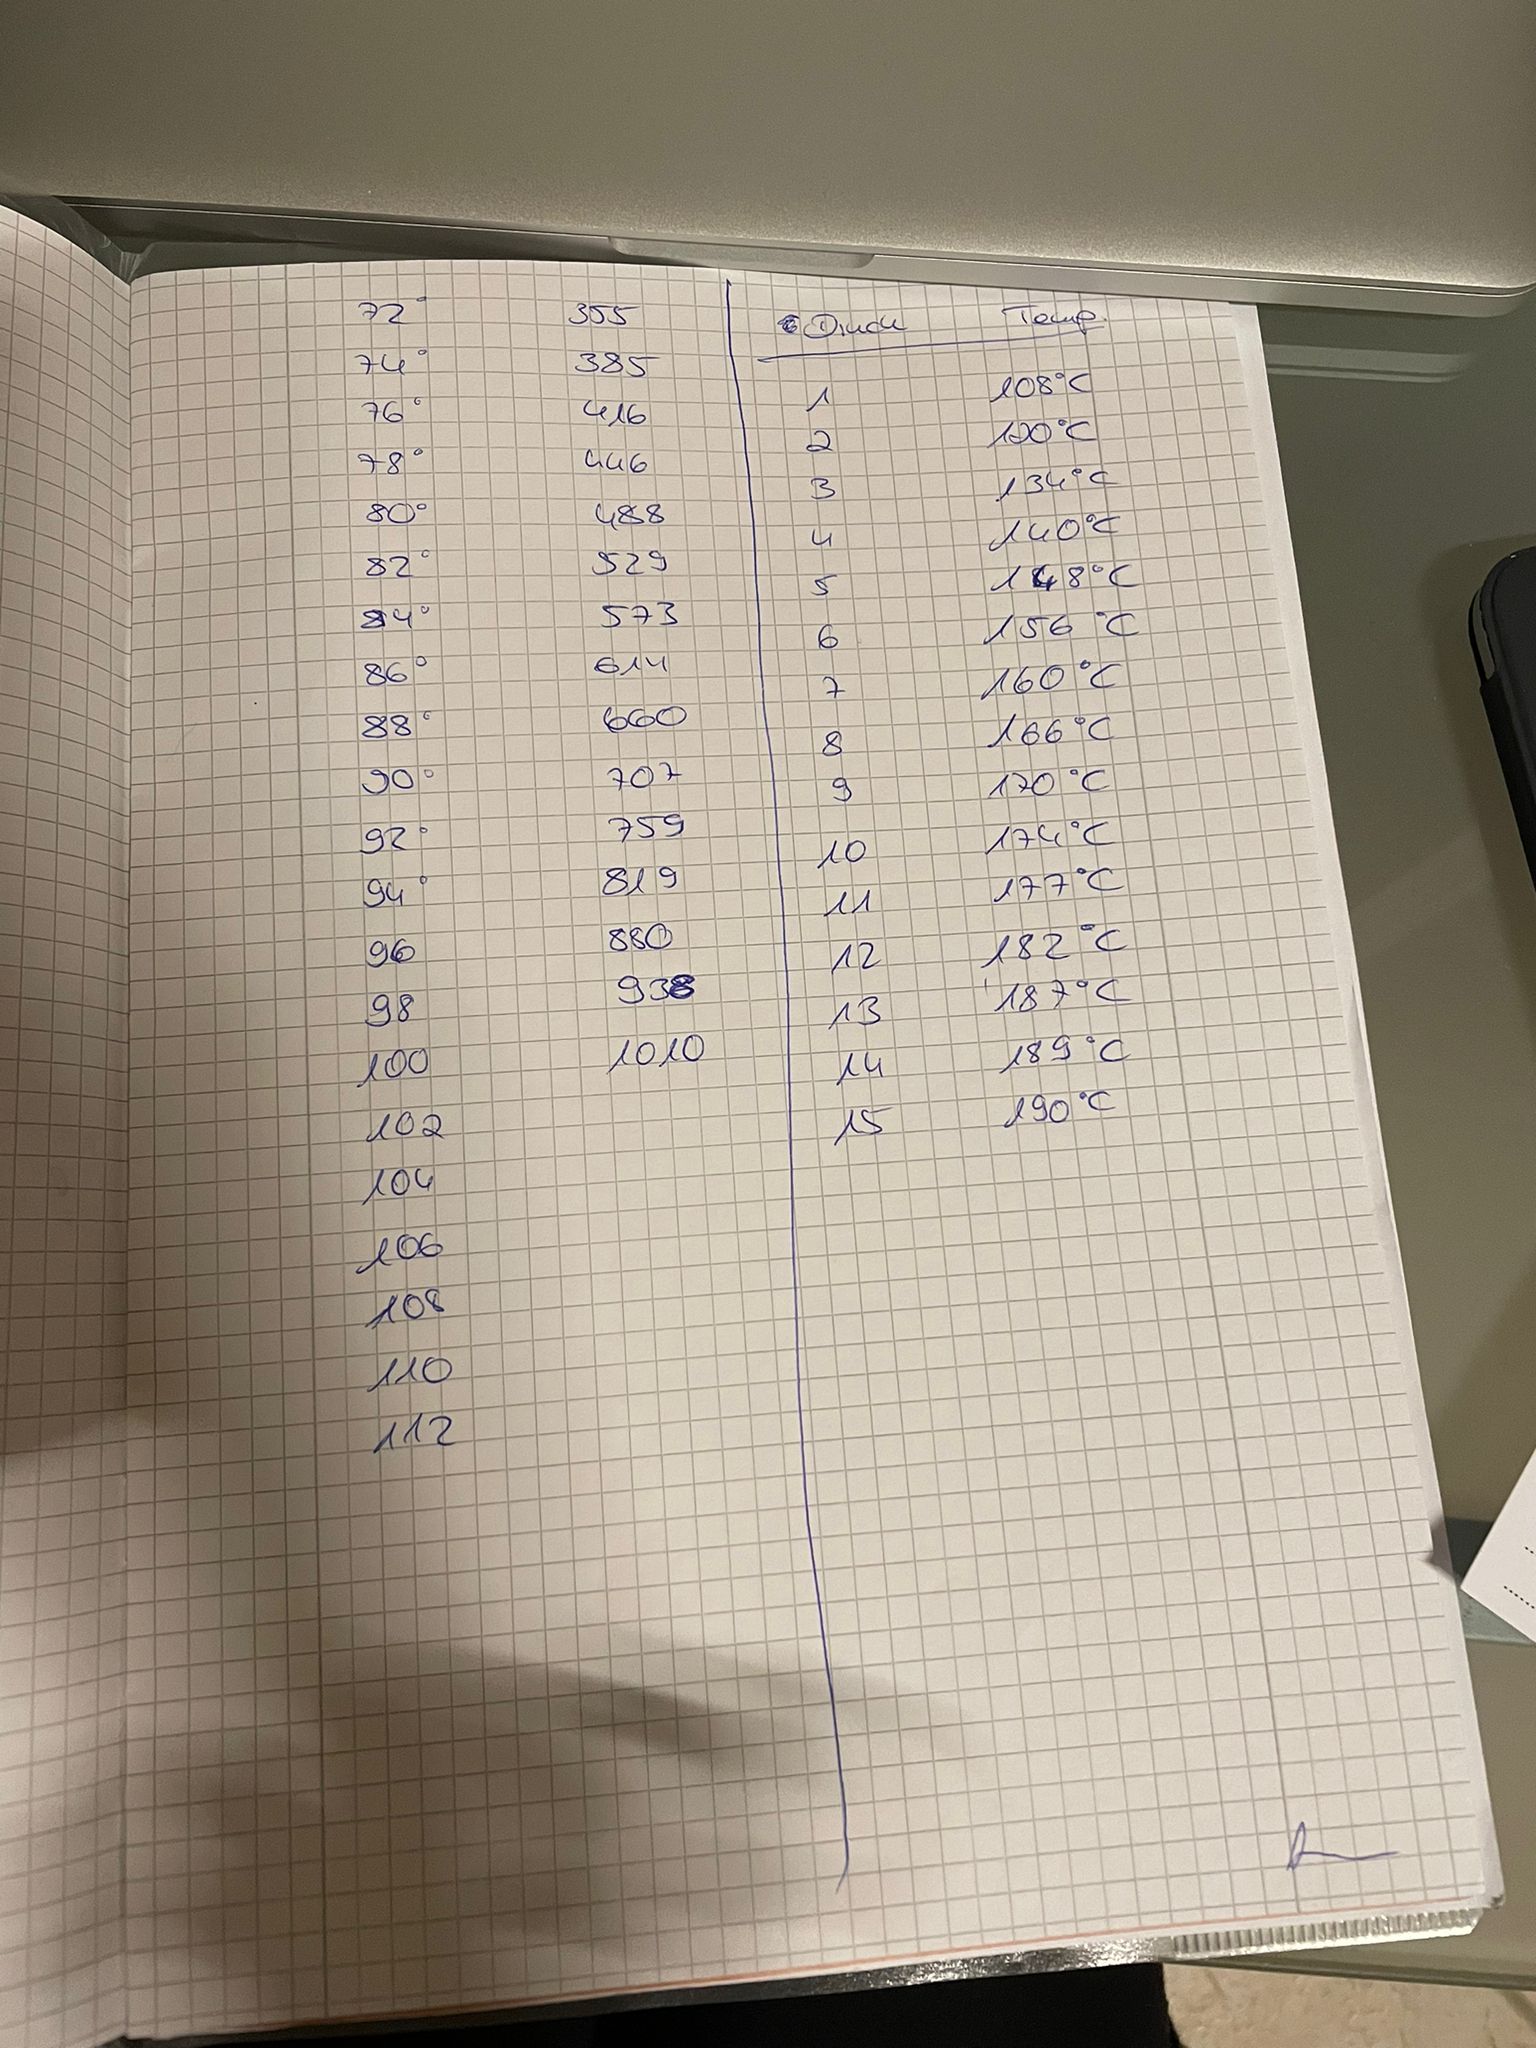 72° 355
74° 385
76° 416
78° 446
80° 488
82° 529
84° 573
86° 614
88° 660
90° 707
92° 759
94° 819
96 880
98 938
100 1010
102
104
106
108
110
112
Druck Temp.
1 108°C
2 120°C
3 134°C
4 140°C
5 148°C
6 156°C
7 160°C
8 166°C
9 170°C
10 174°C
11 177°C
12 182°C
13 187°C
14 189°C
15 190°C